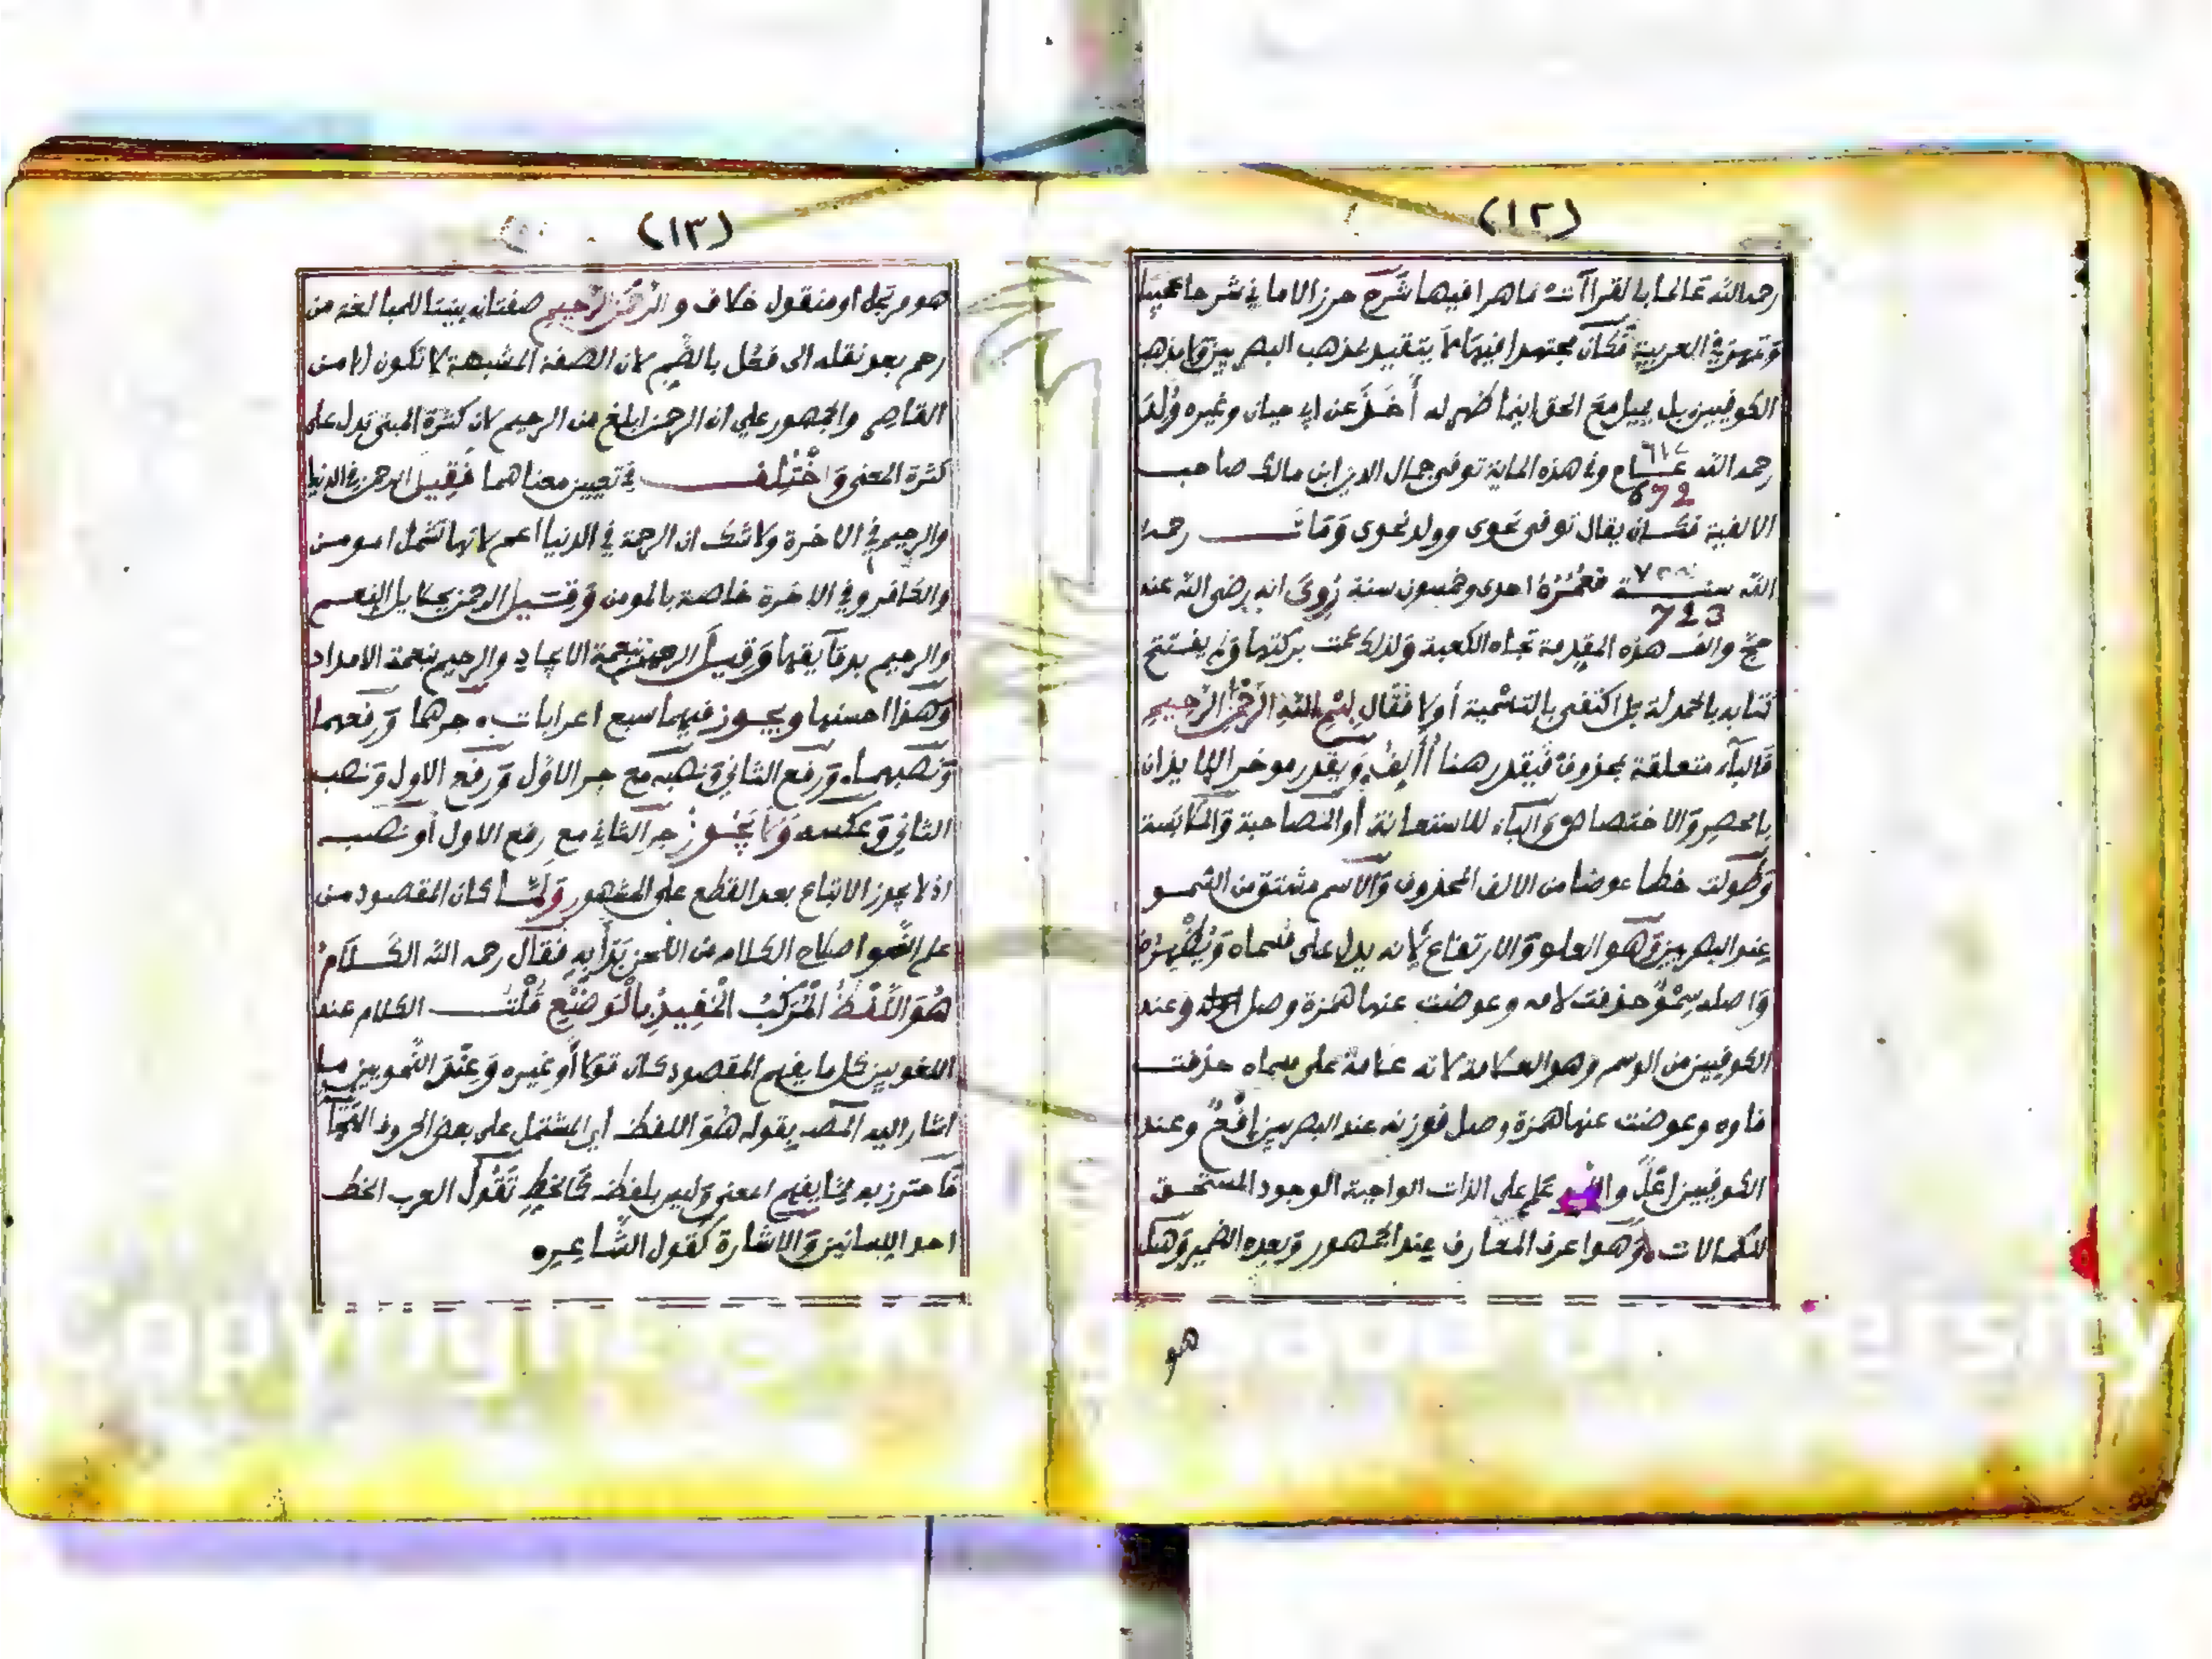 (١٢)
رحمه الله عالما بالقراآت ماهرا فيها شرح حرز الاماني شرحا عجيبا
وتمهر في العربية فكان مجتهدا فيها لا يتقيد بمذهب البصريين ولا بمذهب
الكوفيين بل يميل مع الحق اينما ظهر له أخذ عن ابي حيان وغيره وُلد
رحمه الله عـام وفي هذه الماية توفي جمال الدين ابن مالك صاحب
672
الالفية فكان يقال توفي نحوي وولد نحوي ومات رحمه
الله سنة فعُمُرُهُ احدى وخمسون سنة رُوِيَ انه رضي الله عنه
723
حج والف هذه المقدمة تجاه الكعبة ولذلك عمت بركتها ولم يفتتح
كتابه بالحمدلة بل اكتفى بالتسمية أولا فقال بسم الله الرحمن الرحيم
فالباء متعلقة بمحذوف فيقدر هنا أُأَلِفُ ويقدر موخرا للايذان
بالحصر والاختصاص والباء للاستعانة أو المصاحبة والملابسة
وطولت خطا عوضا من الالف المحذوف والاسم مشتق من السمو
عند البصريين وهو العلو والارتفاع لانه يدل على مسماه ويظهره
واصله سِمْوٌ حذفت لامه وعوضت عنها همزة وصل وعند
الكوفيين من الوسم وهو العلامة لانه علامة على مسماه حذفت
فاوه وعوضت عنها همزة وصل فوزنه عند البصريين افْعٌ وعند
الكوفيين اعْلٌ والله علم على الذات الواجبة الوجود المستحق
للكمالات وهو اعرف المعارف عند الجمهور وبعده الضمير وهل
هو
(١٣)
هو مرتجل او منقول خلاف والرحمن الرحيم صفتان بنيتا للمبالغة من
رحم بعد نقله الى فعُل بالضم لان الصفة المشبهة لا تكون الا من
القاصر والجمهور على ان الرحمن ابلغ من الرحيم لان كثرة المبنى تدل على
كثرة المعنى وَاخْتُلِفَ في تعيين معناهما فقيل الرحمن في الدنيا
والرحيم في الاخرة ولا شك ان الرحمة في الدنيا اعم لانها تشمل المومن
والكافر وفي الاخرة خاصة بالمومن وقيل الرحمن بجلايل النعم
والرحيم بدقآيقها وقيل الرحمن بنعمة الايجاد والرحيم بنعمة الامداد
وهذا احسنها ويجوز فيهما سبع اعرابات جرهما ورفعهما
ونصبهما ورفع الثاني ونصبه مع جر الاول ورفع الاول ونصب
الثاني وعكسه ولا يجوز جر الثاني مع رفع الاول أو نصب
اذ لا يجوز الاتباع بعد القطع على المشهور ولما كان المقصود من
علم النحو اصلاح الكلام من اللحن بَدَأَ بِهِ فقال رحمه الله الكلامُ
هُوَ اللَّفْظُ الْمُرَكَّبُ الْمُفِيدُ بِالْوَضْعِ قُلْتُ الكلام عند
اللغويين كل ما يفهم المقصود كان قولا أو غيره وعند النحويين ما
اشار اليه المصـ بقوله هُوَ اللفظ أي المشتمل على بعض الحروف
فاحترز به مما يفهم المعنى وليس بلفظ كالخط تقول العرب الخط
احد اللسانين والاشارة كقول الشاعر